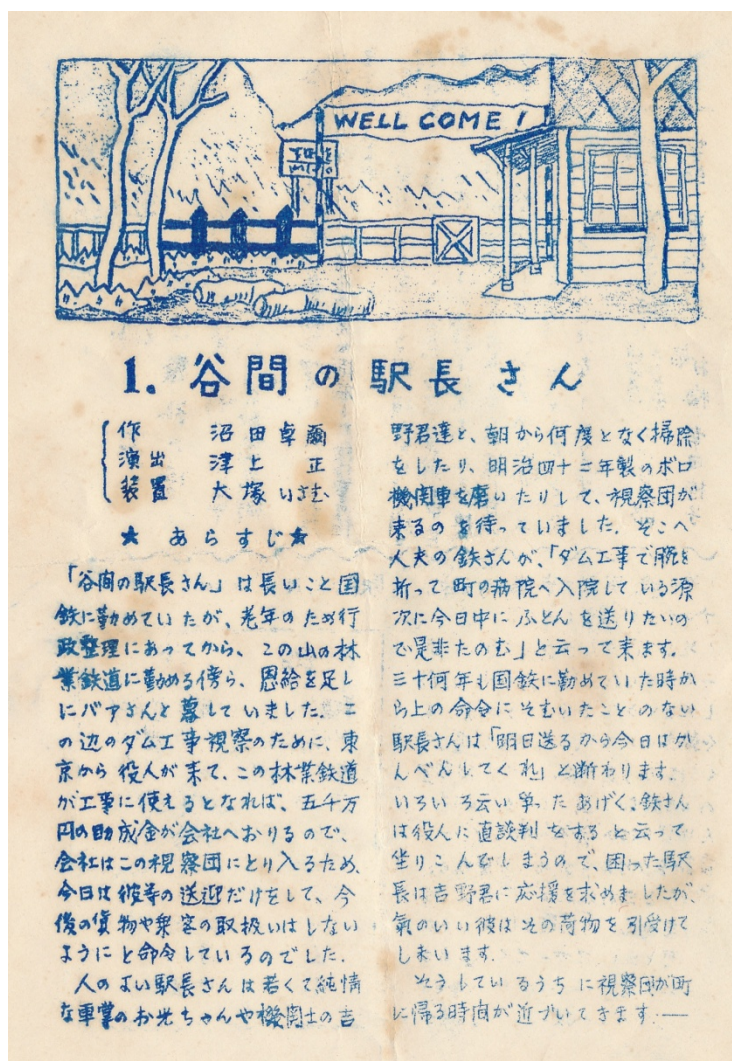 WELL COME!
1. 谷間の駅長さん
作 沼田卓爾
演出 津上正
装置 大塚
★ あらすじ★
「谷間の駅長さん」は長いこと国
鉄に勤めていたが、老年のため行
政整理にあってから、この山の林
業鉄道に勤める傍ら、恩給を足し
にバアさんと暮していました。こ
の辺のダム工事視察のために、東
京から役人が来て、この林業鉄道
が工事に使えるとなれば、五千万
円の助成金が会社へおりるので、
会社はこの視察団にとり入るため、
今日は彼等の送迎だけをして、今
後の貨物や乗客の取扱いはしない
ようにと命令しているのでした。
人のよい駅長さんは若くて純情
な車掌のお光ちゃんや機関士の吉
野君達と、朝から何度となく掃除
をしたり、明治四十二年製のボロ
機関車を磨いたりして、視察団が
来るのを待っていました。そこへ
人夫の鉄さんが、「ダム工事で腕を
折って町の病院へ入院している源
次に今日中にふとんを送りたいの
で是非たのむ」と云って来ます。
三十何年も国鉄に勤めていた時か
ら上の命令にそむいたことのない
駅長さんは「明日送るから今日はか
んべんしてくれ」と断わります。
いろいろ云い争ったあげく、鉄さん
は役人に直談判をすると云って
坐りこんでしまうので、困った駅
長は吉野君に応援を求めましたが、
氣のいい彼はその荷物を引受けて
しまいます。
そうしているうちに視察団が町
に帰る時間が近づいてきます.——